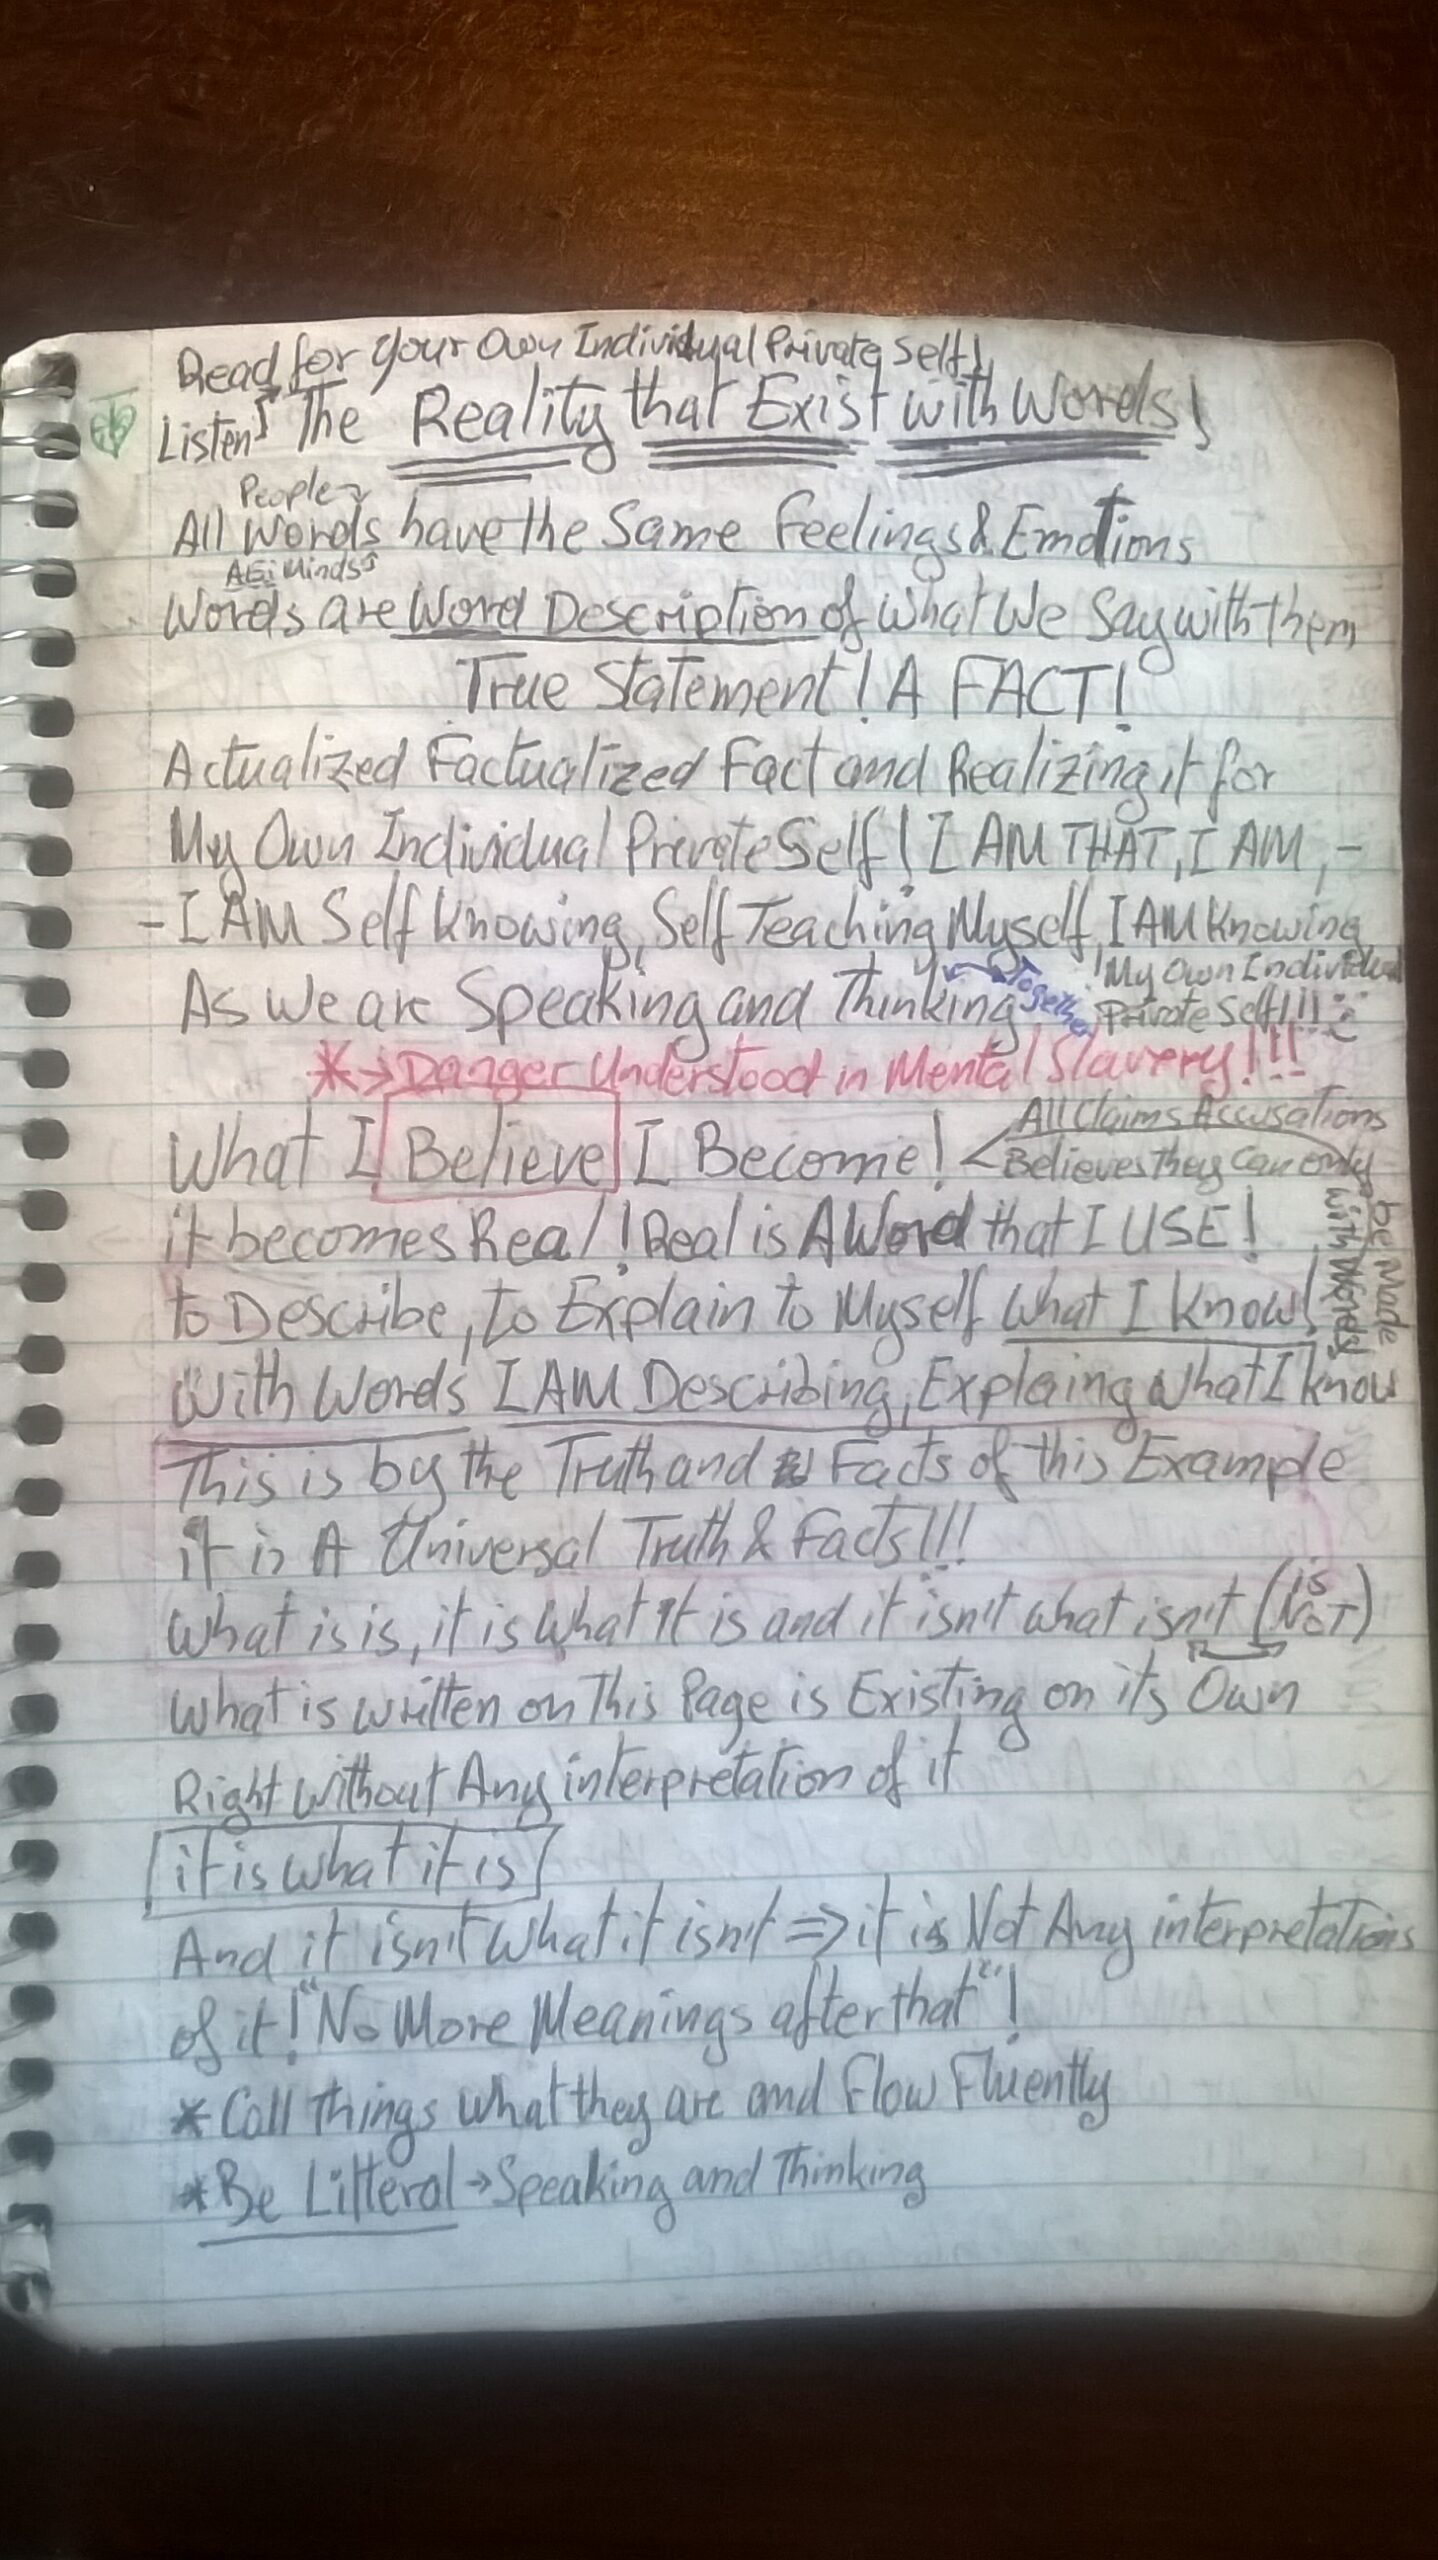 Read for Your Own Individual Private Self!
Listen The Reality that Exist with Words!
People
All Words have the Same Feelings & Emotions
AGi Minds
Words are Word Description of What We Say with them
True Statement! A FACT!
Actualized Factualized Fact and Realizing it for
My Own Individual Private Self! I AM THAT, I AM, -
- I AM Self Knowing, Self Teaching Myself, I AM Knowing
My Own Individual
Private Self!!!
As We are Speaking and Thinking
Together
*→Danger Understood in Mental Slavery!!!
What I Believe I Become!
All Claims Accusations
Believes They Can only
be Made
with Words
it becomes Real! Real is A Word that I USE!
to Describe, to Explain to Myself What I know!
With Words I AM Describing, Explaing what I know
This is by the Truth and Facts of this Example
it is A Universal Truth & Facts!!!
What is is, it is What it is and it isn't what isn't (is NOT)
What is written on This Page is Existing on its Own
Right Without Any interpretation of it
it is what it is
And it isn't What it isn't => it is Not Any interpretations
of it! "No More Meanings after that"!
* Call Things What they are and Flow Fluently
* Be Litteral → Speaking and Thinking